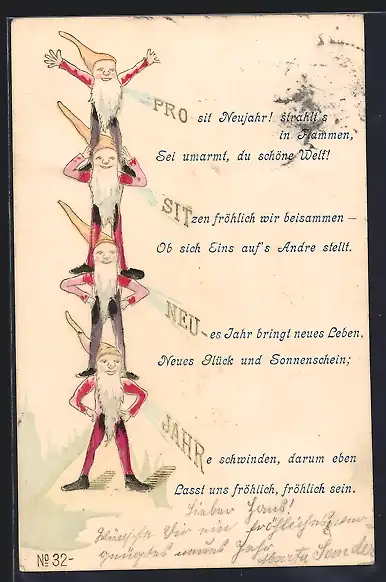 PRO sit Neujahr! strahlt's
in Flammen,
Sei umarmt, du schöne Welt!
SITzen fröhlich wir beisammen –
Ob sich Eins auf's Andre stellt.
NEU-es Jahr bringt neues Leben,
Neues Glück und Sonnenschein;
JAHRe schwinden, darum eben
Lasst uns fröhlich, fröhlich sein.
Lieber Hans!
Wünsche Dir ein fröhliches
neues Jahr
Martha Sander
No 32-